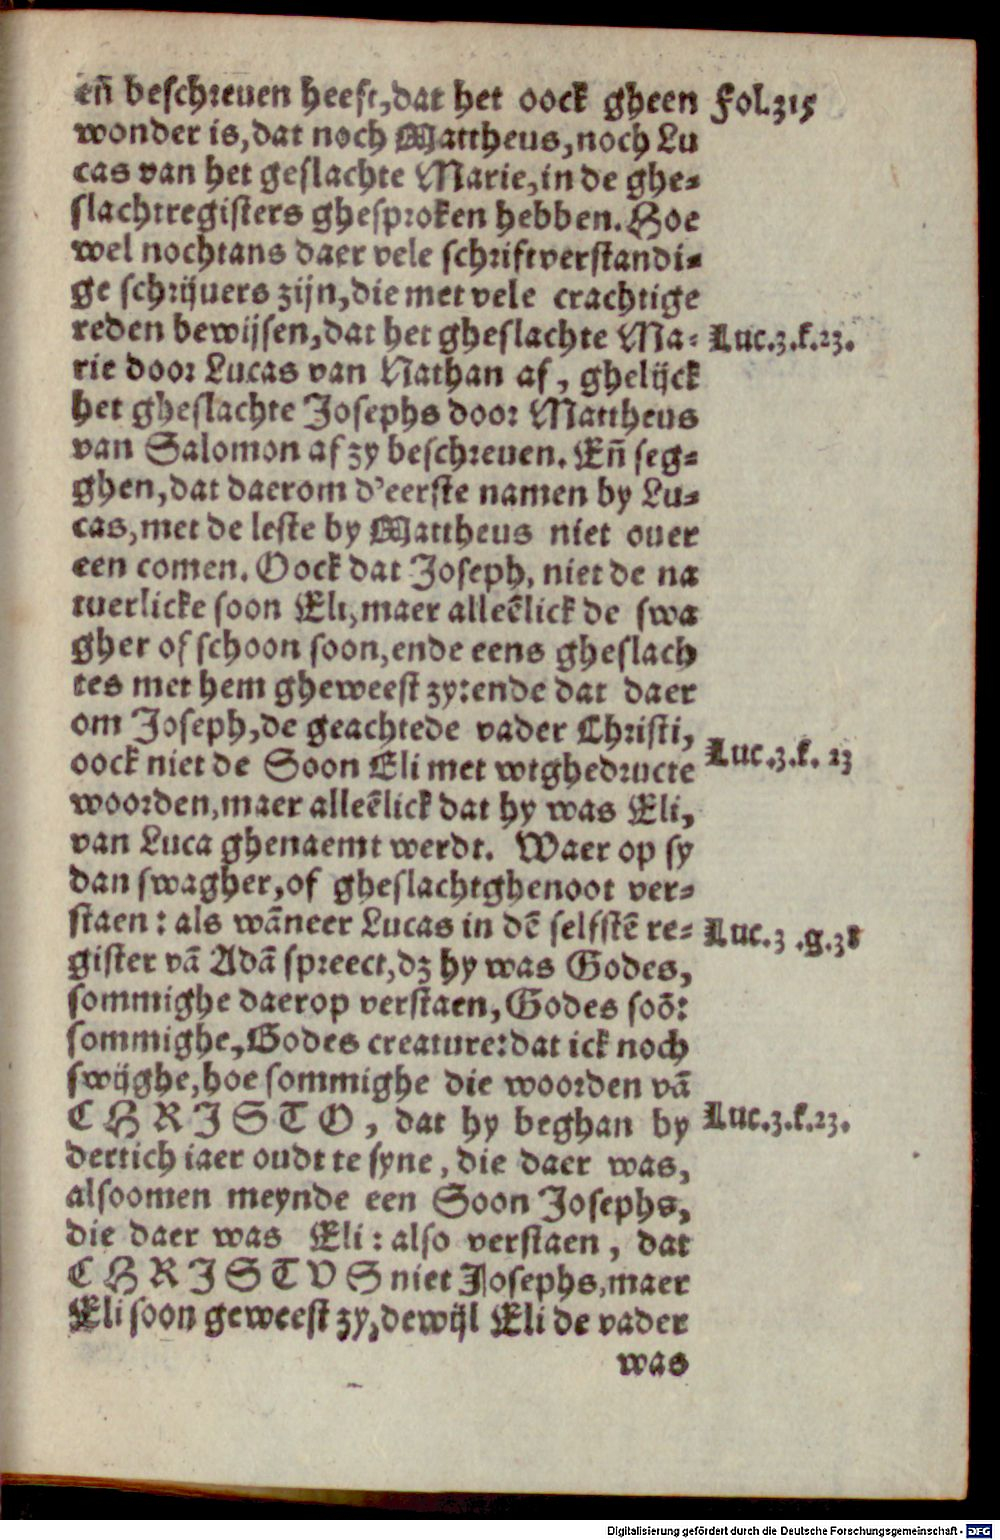 eñ beschreuen heeft, dat het oock gheen Fol.315
wonder is, dat noch Mattheus, noch Lu
cas van het geslachte Marie, in de ghe-
slachtregisters ghesproken hebben. Hoe
wel nochtans daer vele schriftverstandi-
ge schrijuers zijn, die met vele crachtige
reden bewijsen, dat het gheslachte Ma- Luc.3.k.23.
rie door Lucas van Nathan af, ghelijck
het gheslachte Josephs door Mattheus
van Salomon af zy beschreuen. Eñ seg-
ghen, dat daerom d'eerste namen by Lu-
cas, met de leste by Mattheus niet ouer
een comen. Oock dat Joseph, niet de na
tuerlicke soon Eli, maer alleēlick de swa
gher of schoon soon, ende eens gheslach
tes met hem gheweest zy: ende dat daer
om Joseph, de geachtede vader Christi,
oock niet de Soon Eli met wtghedructe Luc.3.k. 23
woorden, maer alleēlick dat hy was Eli,
van Luca ghenaemt werdt. Waer op sy
dan swagher, of gheslachtghenoot ver-
staen: als wāneer Lucas in dē selfstē re- Luc.3 .g.38
gister vā Adā spreect, dz hy was Godes,
sommighe daerop verstaen, Godes soō:
sommighe, Godes creature: dat ick noch
swijghe, hoe sommighe die woorden vā
CHRISTO, dat hy beghan by Luc.3.k.23.
dertich iaer oudt te syne, die daer was,
alsoomen meynde een Soon Josephs,
die daer was Eli: also verstaen, dat
CHRISTVS niet Josephs, maer
Eli soon geweest zy, dewijl Eli de vader
was
Digitalisierung gefördert durch die Deutsche Forschungsgemeinschaft - DFG